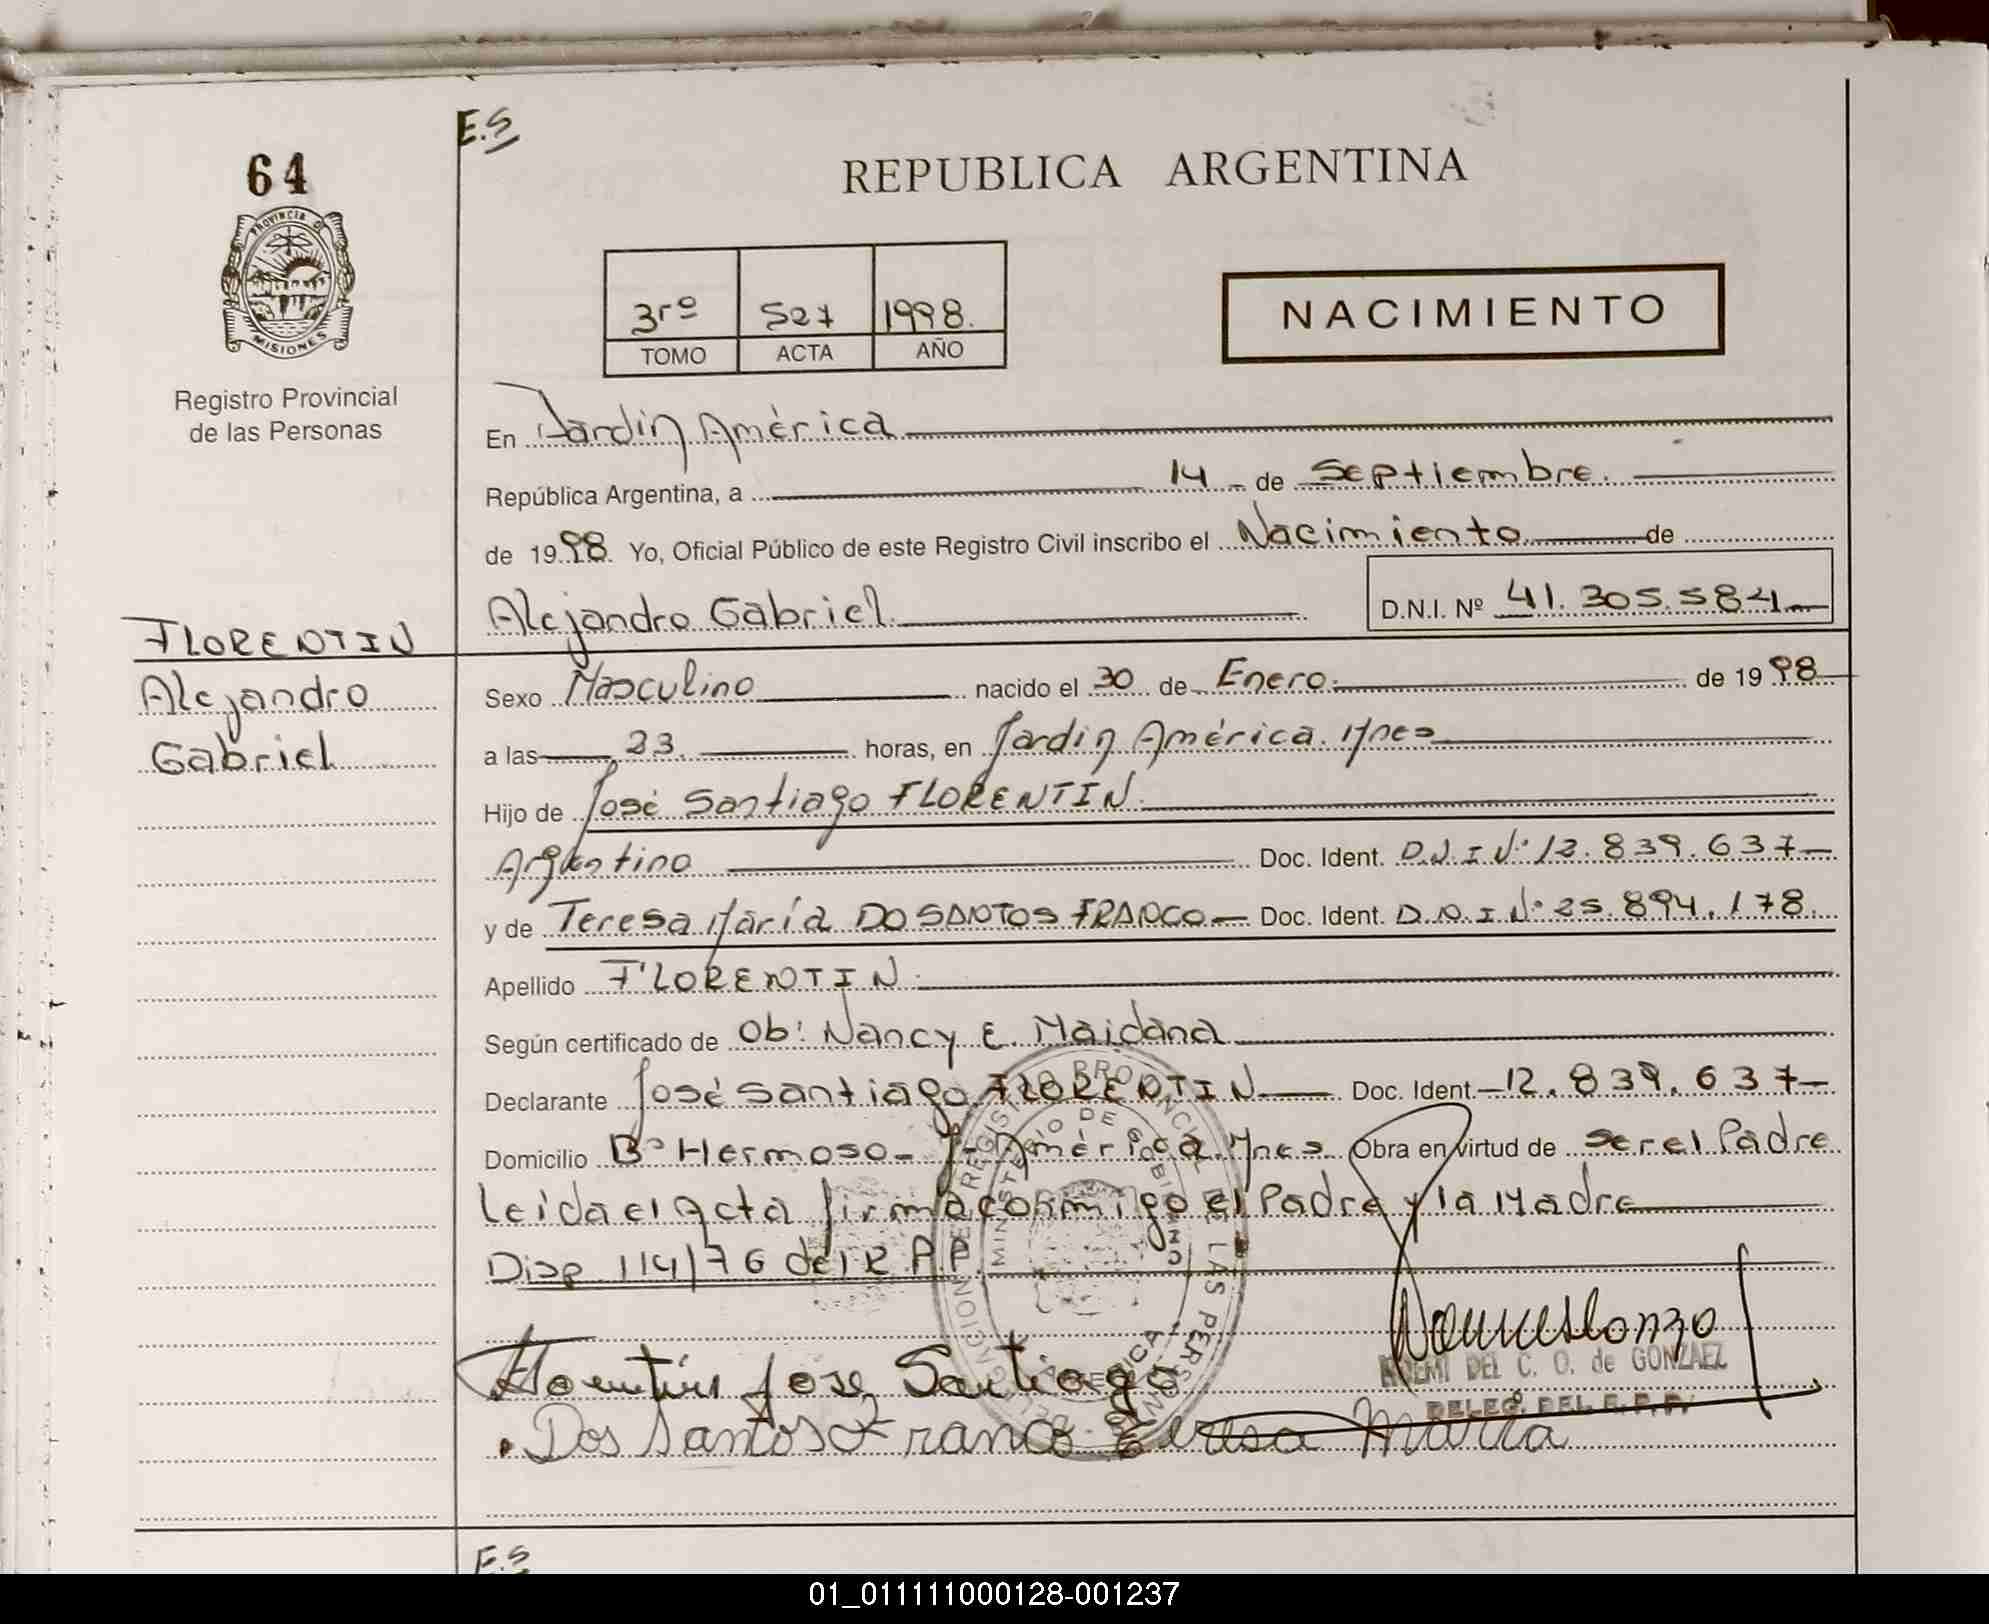 E.S
64
REPUBLICA ARGENTINA
PROVINCIA DE
MISIONES
Registro Provincial
de las Personas
3rº 527 1998.
TOMO ACTA AÑO
NACIMIENTO
En Jardin América
República Argentina, a 14 de Septiembre.
de 1998. Yo, Oficial Público de este Registro Civil inscribo el Nacimiento de
Alejandro Gabriel D.N.I. Nº 41.305.584
FLORENTIN
Alejandro
Gabriel
Sexo Masculino nacido el 30 de Enero. de 1998
a las 23. horas, en Jardin América. Mnes
Hijo de José Santiago FLORENTIN.
Argentino Doc. Ident. D.N.I Nº 12.839.637
y de Teresa María DO SANTOS FRANCO Doc. Ident. D.N.I Nº 25.894.178.
Apellido FLORENTIN.
Según certificado de Ob: Nancy E. Maidana
Declarante José Santiago FLORENTIN Doc. Ident. 12.839.637
Domicilio Bº Hermoso - J. América. Mnes. Obra en virtud de ser el Padre
Leída el Acta firma conmigo el Padre y la Madre
Disp 114/76 del R.P.P.
Florentin Jose Santiago
NOEMI DEL C. O. de GONZAEZ
DELEG. DEL R.P.P.
Dos Santos Franco Teresa Maria
E.S
01_011111000128-001237